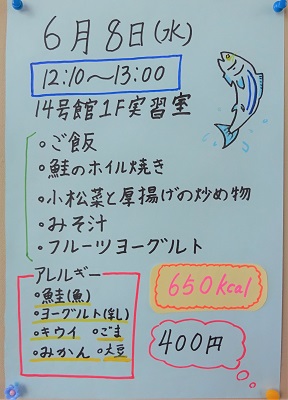 6月8日(水)
12:10〜13:00
14号館1F実習室
・ご飯
・鮭のホイル焼き
・小松菜と厚揚げの炒め物
・みそ汁
・フルーツヨーグルト
アレルギー
・鮭(魚)
・ヨーグルト(乳)
・キウイ ・ごま
・みかん ・大豆
650kcal
400円